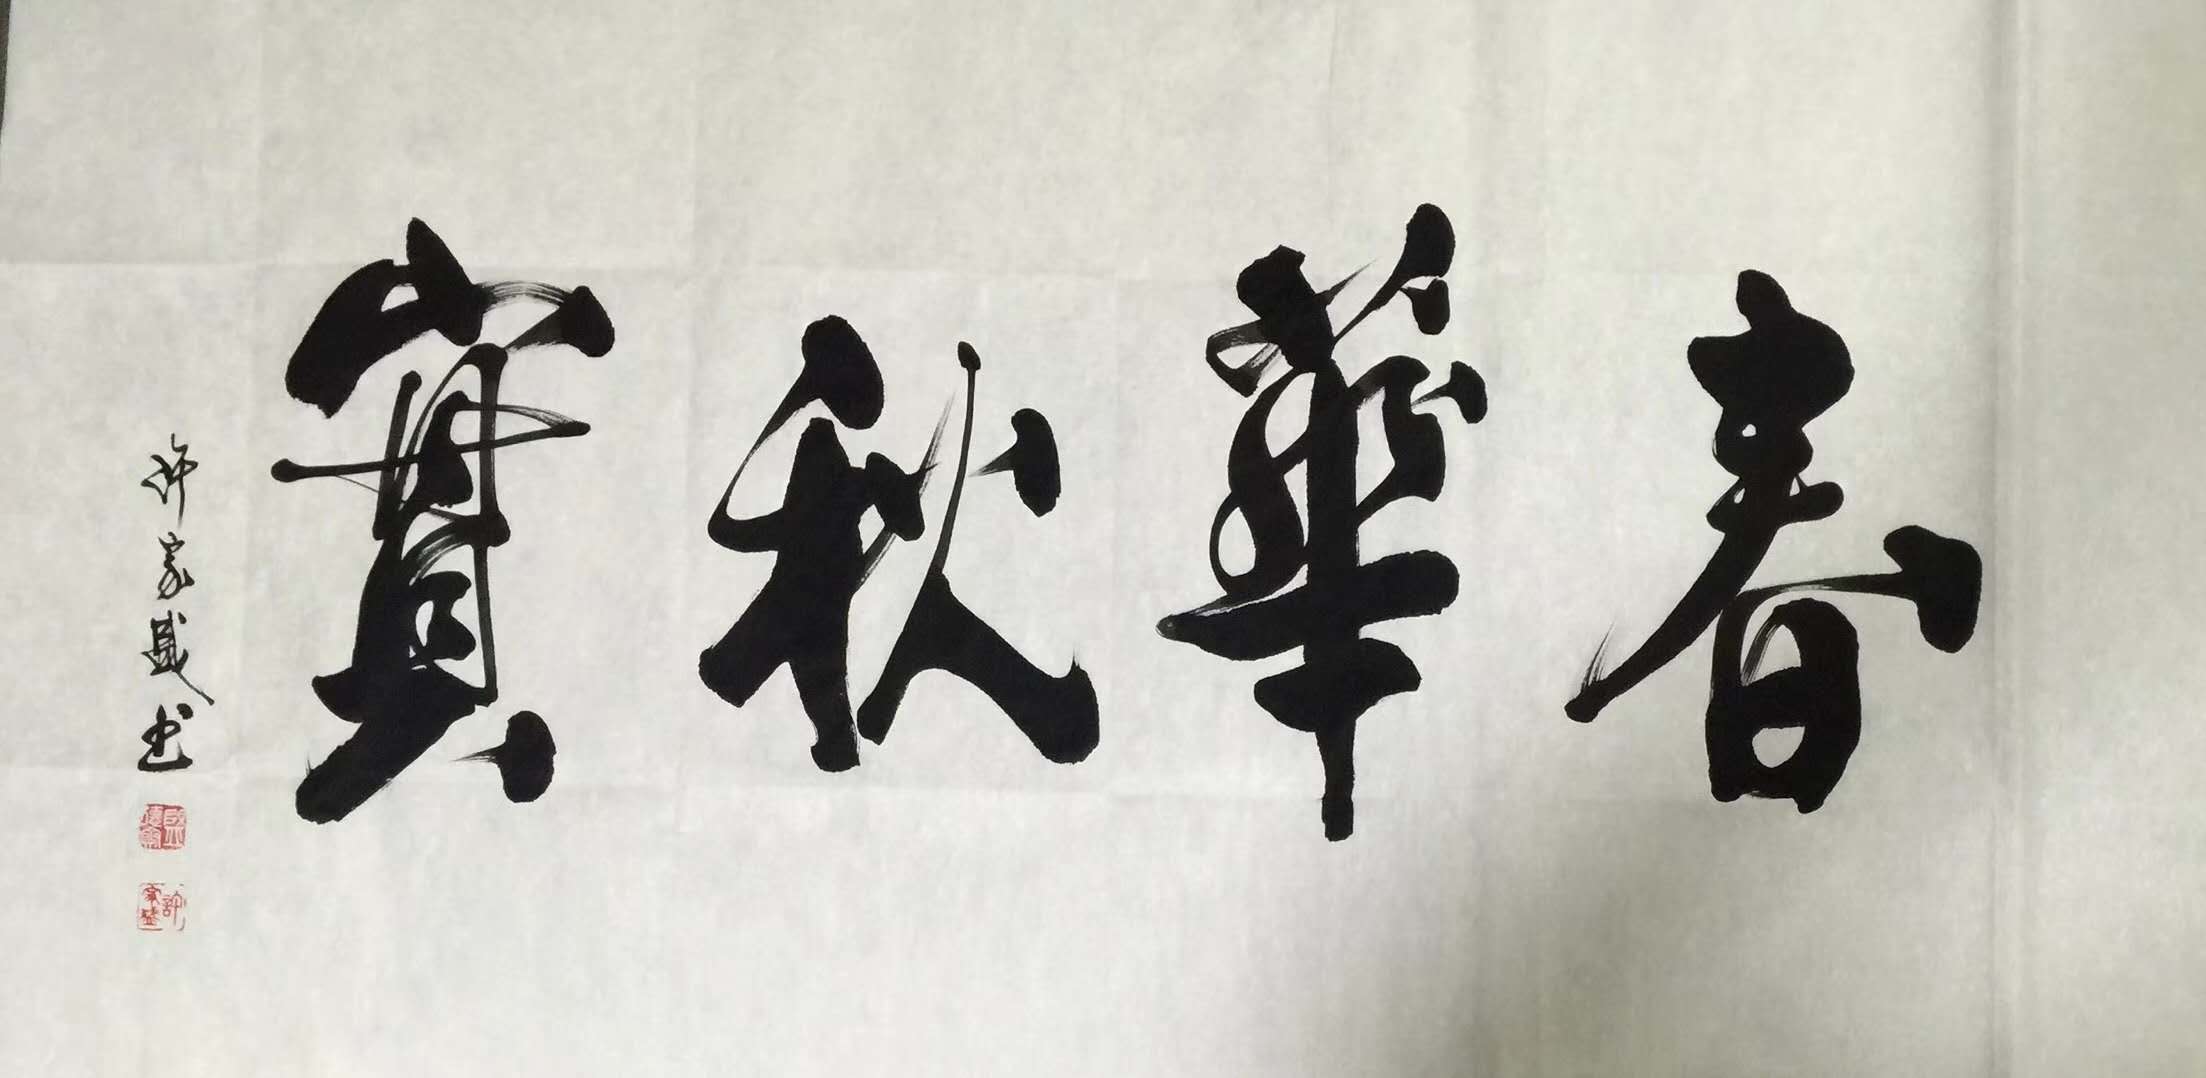 春華秋實
許家盛书
許家盛